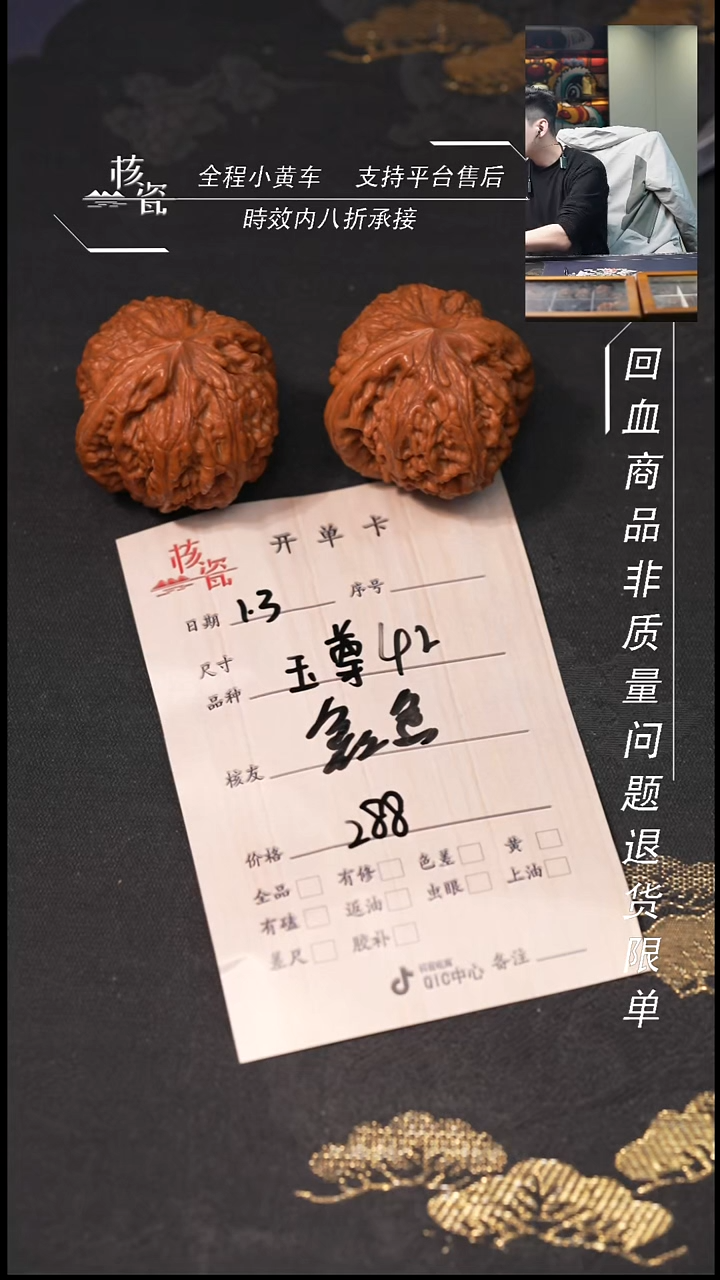 核瓷
全程小黄车 支持平台售后
時效内八折承接
回血商品非质量问题退货限单
核瓷
开单卡
日期 1.3 序号
尺寸
品种 玉尊42
核友
价格 288
全品 有修 色差 黄
有磕 返油 虫眼 上油
差尺 胶补
QIC中心 备注